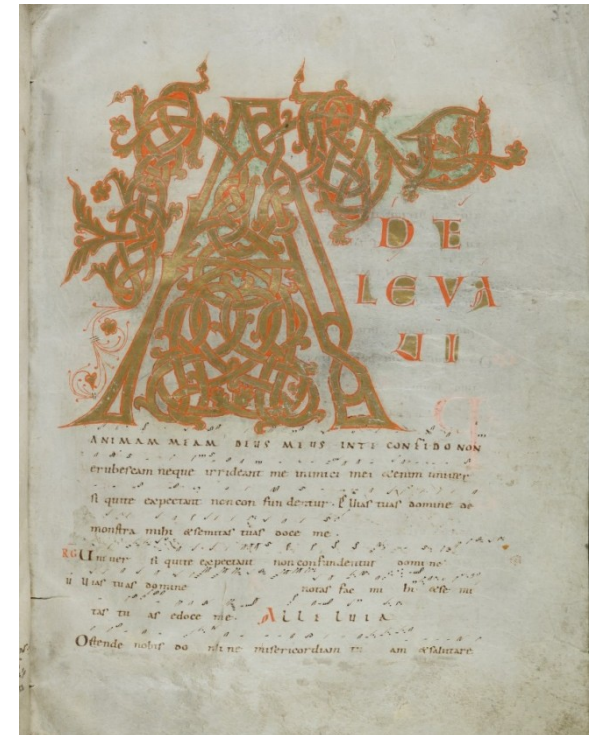 33
A
D E
LEVA
VI
ANIMAM MEAM DEUS MEUS INTE CONFIDO NON
erubescam neque irrideant me inimici mei etenim univer
si qui te expectant non con fun dentur. Ps Vias tuas domine de
monstra mihi & semitas tuas doce me.
RG Univer si qui te expectant non confundentur domine
V Vias tuas domine notas fac mi hi & se mi
tas tu as edoce me. Alleluia
Ostende nobis do mi ne misericordiam tu am & salutare